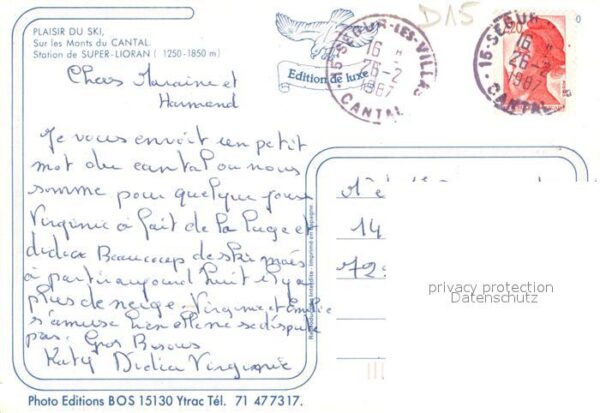 D15
PLAISIR DU SKI,
Sur les Monts du CANTAL.
Station de SUPER-LIORAN ( 1250-1850 m)
Edition de luxe
15-SEGUR-LES-VILLAS
16 H
26-2
1987
CANTAL
2,20
15-SEGUR
16 H
26-2
1987
CANTAL
Chers Maraine et
Harmand
Je vous envoit un petit
mot du cantal ou nous
somme pour quelque jours
Virginie à fait de la luge et
didier Beaucoup de ski mais
à partir aujourd huit il y a
plus de neige. Virginie et Emilie
s'amuse bien elle ne se dispute
pas. Gros Bisous
Katy Didier Virginie
14
72
privacy protection
Datenschutz
Reproduction interdite - Imprimé en Espagne
Photo Editions BOS 15130 Ytrac Tél. 71 477317.